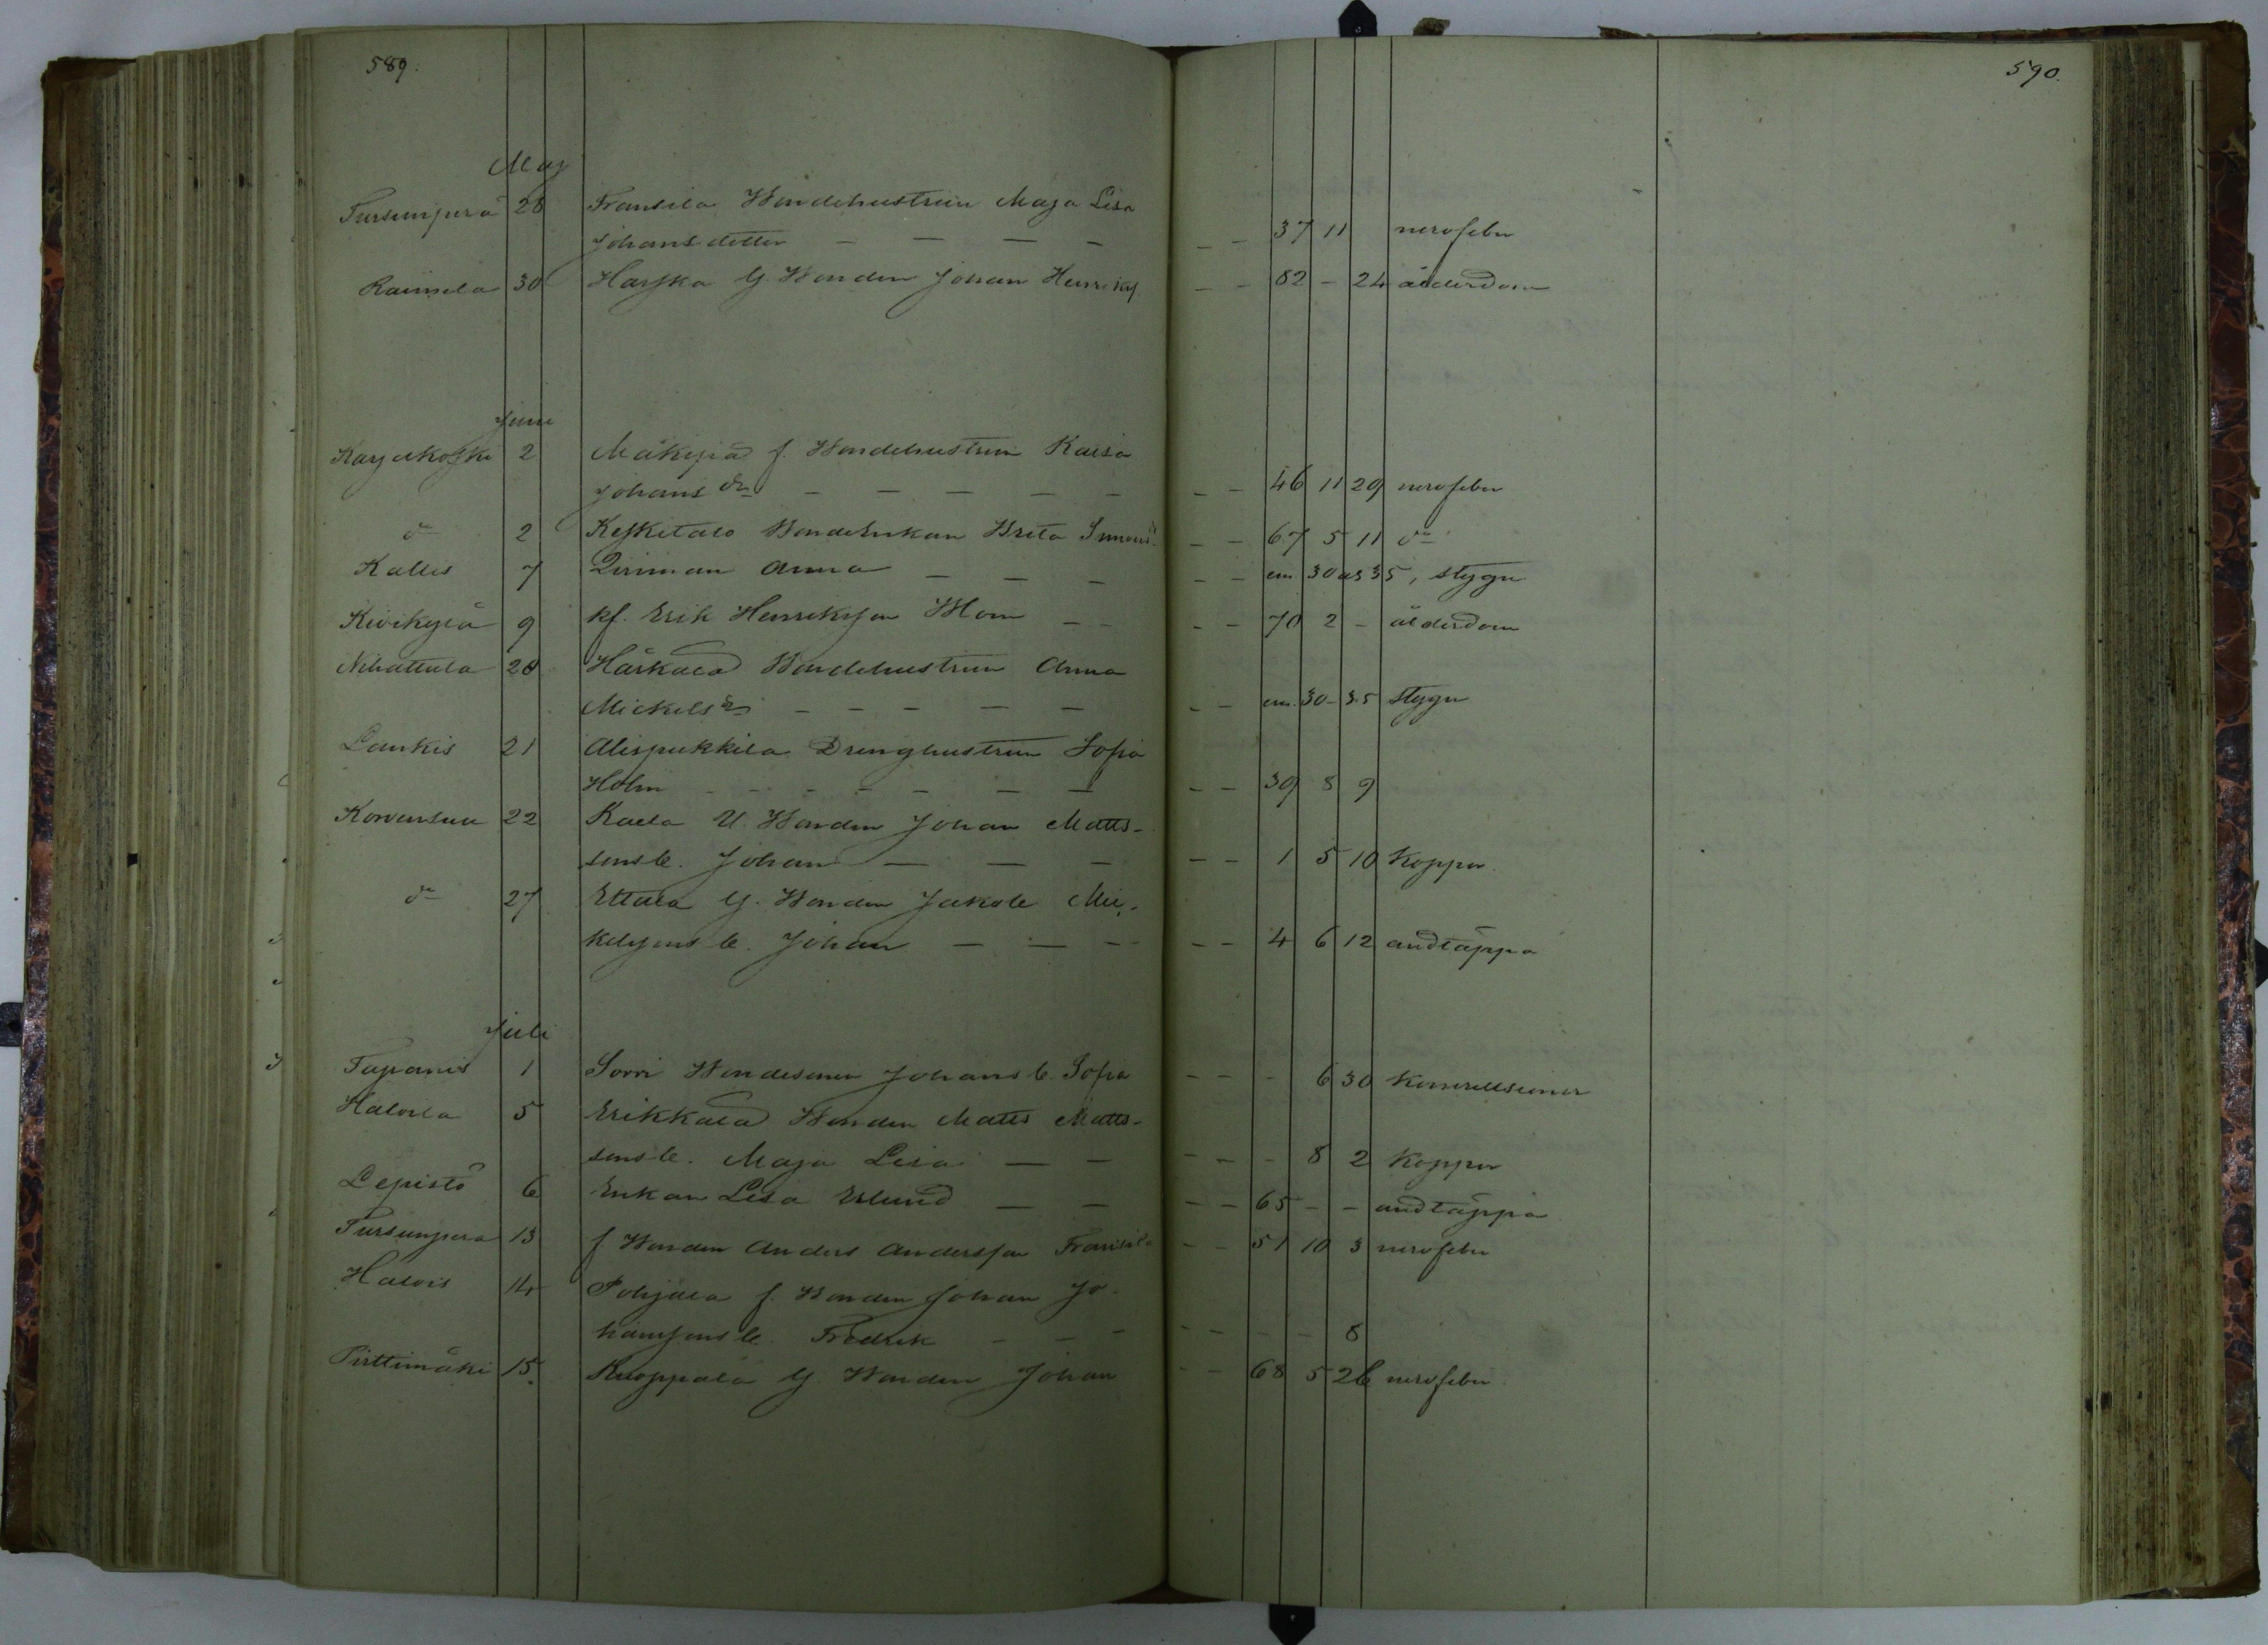 589.
590.
Maj
Tursunperä 28 Fransila Bondehustrun Maja Lisa
Johansdotter — — — — — — 37 11 nervfeber
Rainsela 30 Harfka G. Bonden Johan Henriksf. — — 82 — 24 ålderdom
Juni
Karjekoski 2 Mäkipää f. Bondehustrun Kaisa
Johans dr — — — — — — — 46 11 29 nervfeber
do 2 Kefkitalo Bondeenkan Brita Simons — — 67 5 11 do
Kalles 7 Anna — — — — — em 30 as 35, stygn
Kivikylä 9 kf. Erik Henriksfon Blom — — — — 70 2 — ålderdom
Nihattula 20 Härkälä Bondehustrun Anna
Mickels dr — — — — — — — em. 30 - 35 stygn
Laukis 21 Alispukkila Drenghustrun Sofia
Holm — — — — — — — — — 39 8 9
Korvensuu 22 U. Bonden Johan Matts-
sons b. Johan — — — — — 1 5 10 Koppor
do 27 Ettala G. Bonden Jakob Mic-
kelsfons b. Johan — — — — — 4 6 12 andtäppa
Juli
Tapanis 1 Sorri Bondesonen Johans b. Sofia — — — 6 30
Haloila 5 Erikkala Bonden Matts Matts-
sons b. Maja Lisa — — — — — 8 2 Koppor
Lepistö 6 Enkan Lisa Eslund — — — — 65 — — andtäppa
Tursunperä 13 f. Bonden Anders Andersfon Fransila — — 51 10 3 nervfeber
Halois 14 Pohjala f. Bonden Johan Jo-
hansfons b. Fredrik — — — — — — — 8
Pirttimäki 15. Kuoppala G. Bonden Johan — — 68 5 26 nervfeber